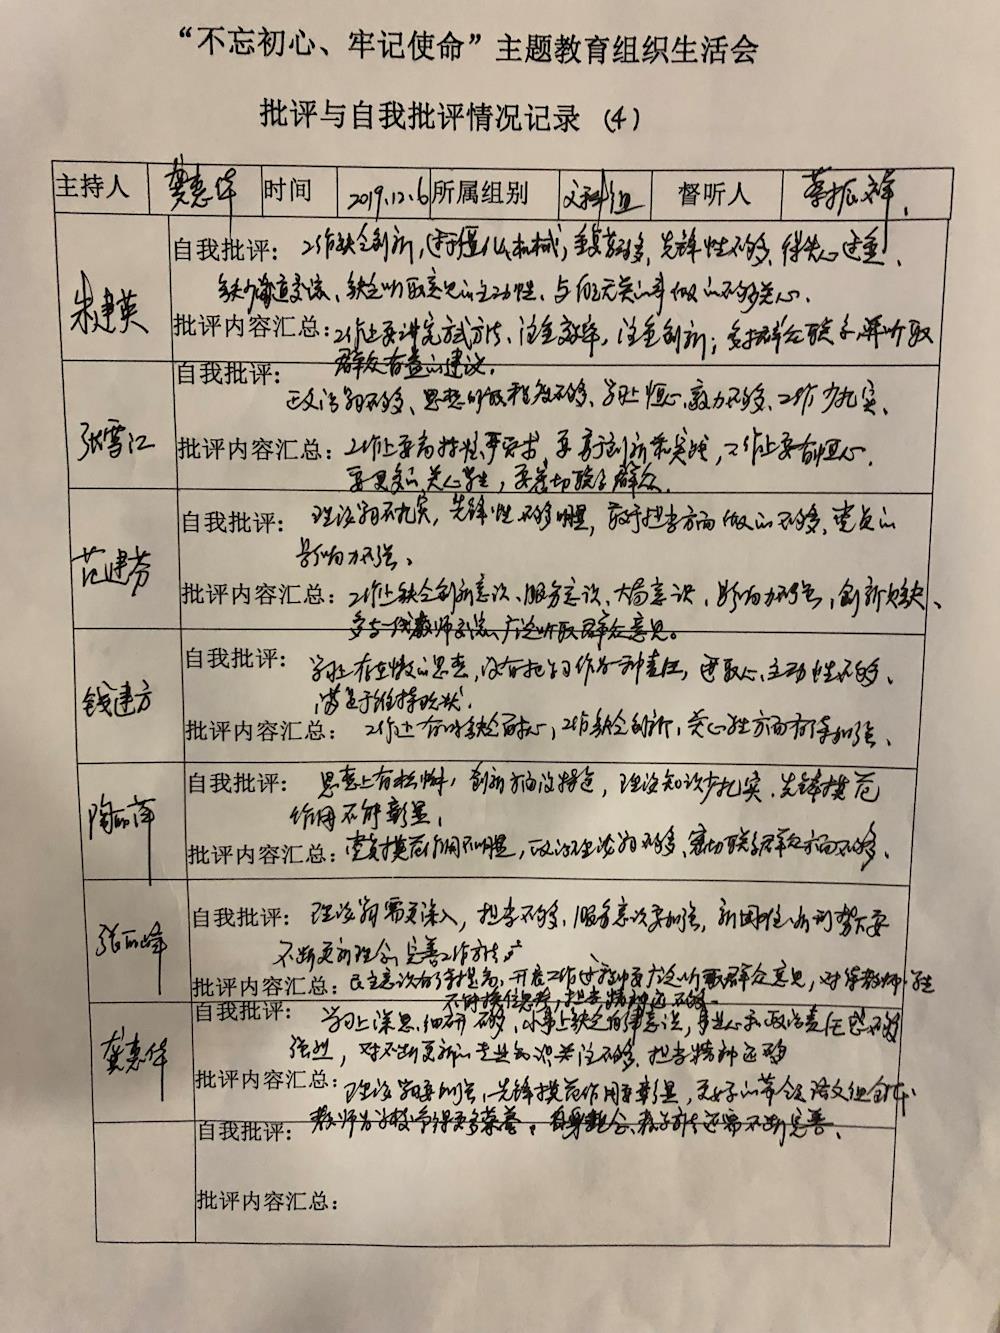 “不忘初心、牢记使命”主题教育组织生活会
批评与自我批评情况记录 (4)
主持人 龚惠华 时间 2019.12.6 所属组别 文科组 督听人 蔡振祥
朱建英
自我批评: 工作缺乏创新, 先锋性不够、得失心过重、
缺少沟通交流、缺乏听取意见的主动性、与自己无关的事做的不够关心。
批评内容汇总: 工作上要讲究方式方法、注重效率, 注重创新; 多和群众联系, 听取
群众有益的建议。
张雪江
自我批评:
政治学习不够、思想解放程度不够、学习上恒心、毅力不够、工作少扎实、
批评内容汇总: 工作上要高标准、严要求, 要勇于创新和实践, 工作上要有恒心.
要更多的关心学生, 要密切联系群众.
范建芬
自我批评: 理论学习不扎实, 先锋性不够明显, 敢于担当方面做的不够, 党员的
影响力不强。
批评内容汇总: 工作上缺乏创新意识、服务意识、大局意识, 影响力不强, 创新欠缺、
多与一线教师交流、广泛听取群众意见。
钱建方
自我批评: 学习上存在懒的思想, 没有把学习作为一种责任, 进取心、主动性不够、
满足于维持现状.
批评内容汇总: 工作上有时缺乏耐心, 工作缺乏创新, 关心学生方面有待加强、
陶丽萍
自我批评: 思想上有松懈, 创新方面没特色, 理论知识少扎实、先锋模范
作用不够彰显,
批评内容汇总: 党员模范作用不明显, 政治理论学习不够、密切联系群众方面不够、
张丽峰
自我批评: 理论学习需更深入, 担当不够, 服务意识要加强, 新形势下要
不断更新理念, 完善工作方法。
批评内容汇总: 民主意识有待提高、开展工作过程中要广泛听取群众意见, 对待教师、学生
不够换位思考, 担当精神还不够.
龚惠华
自我批评: 学习上深思、细研不够, 小事上缺乏自律意识, 事业心和政治责任感不够
强烈, 对不断更新的专业知识关注不够, 担当精神还不够
批评内容汇总: 理论学习要加强, 先锋模范作用要彰显, 更好的带领语文组全体
教师为学校争得更多荣誉。自身理念、教学方法还需不断完善、
自我批评:
批评内容汇总: